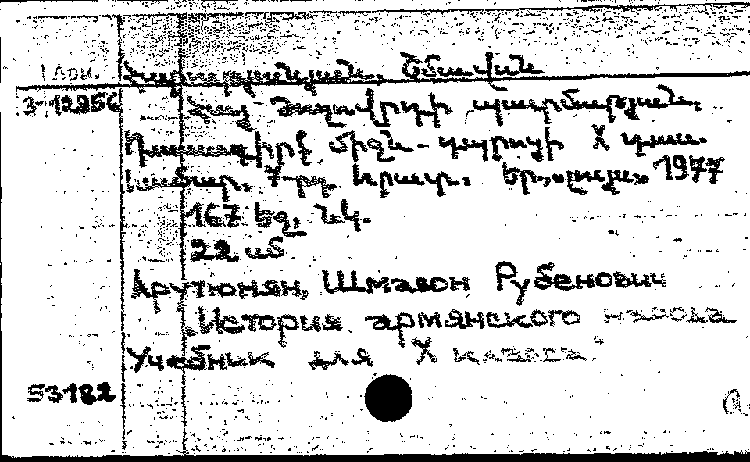 Հարությունյան, Շմավոն
3-12256 Հայ ժողովրդի պատմություն.
Դասագիրք միջն. դպրոցի X դաս.
համար. 7-րդ հրատ. Եր., «Լույս» 1977
167 եջ, նկ.
22 սմ
Арутюнян, Шмавон Рубенович
"История армянского народа
Учебник для X класса"
53182